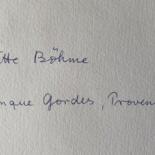 tte Böhme
nque Gordes, Proven